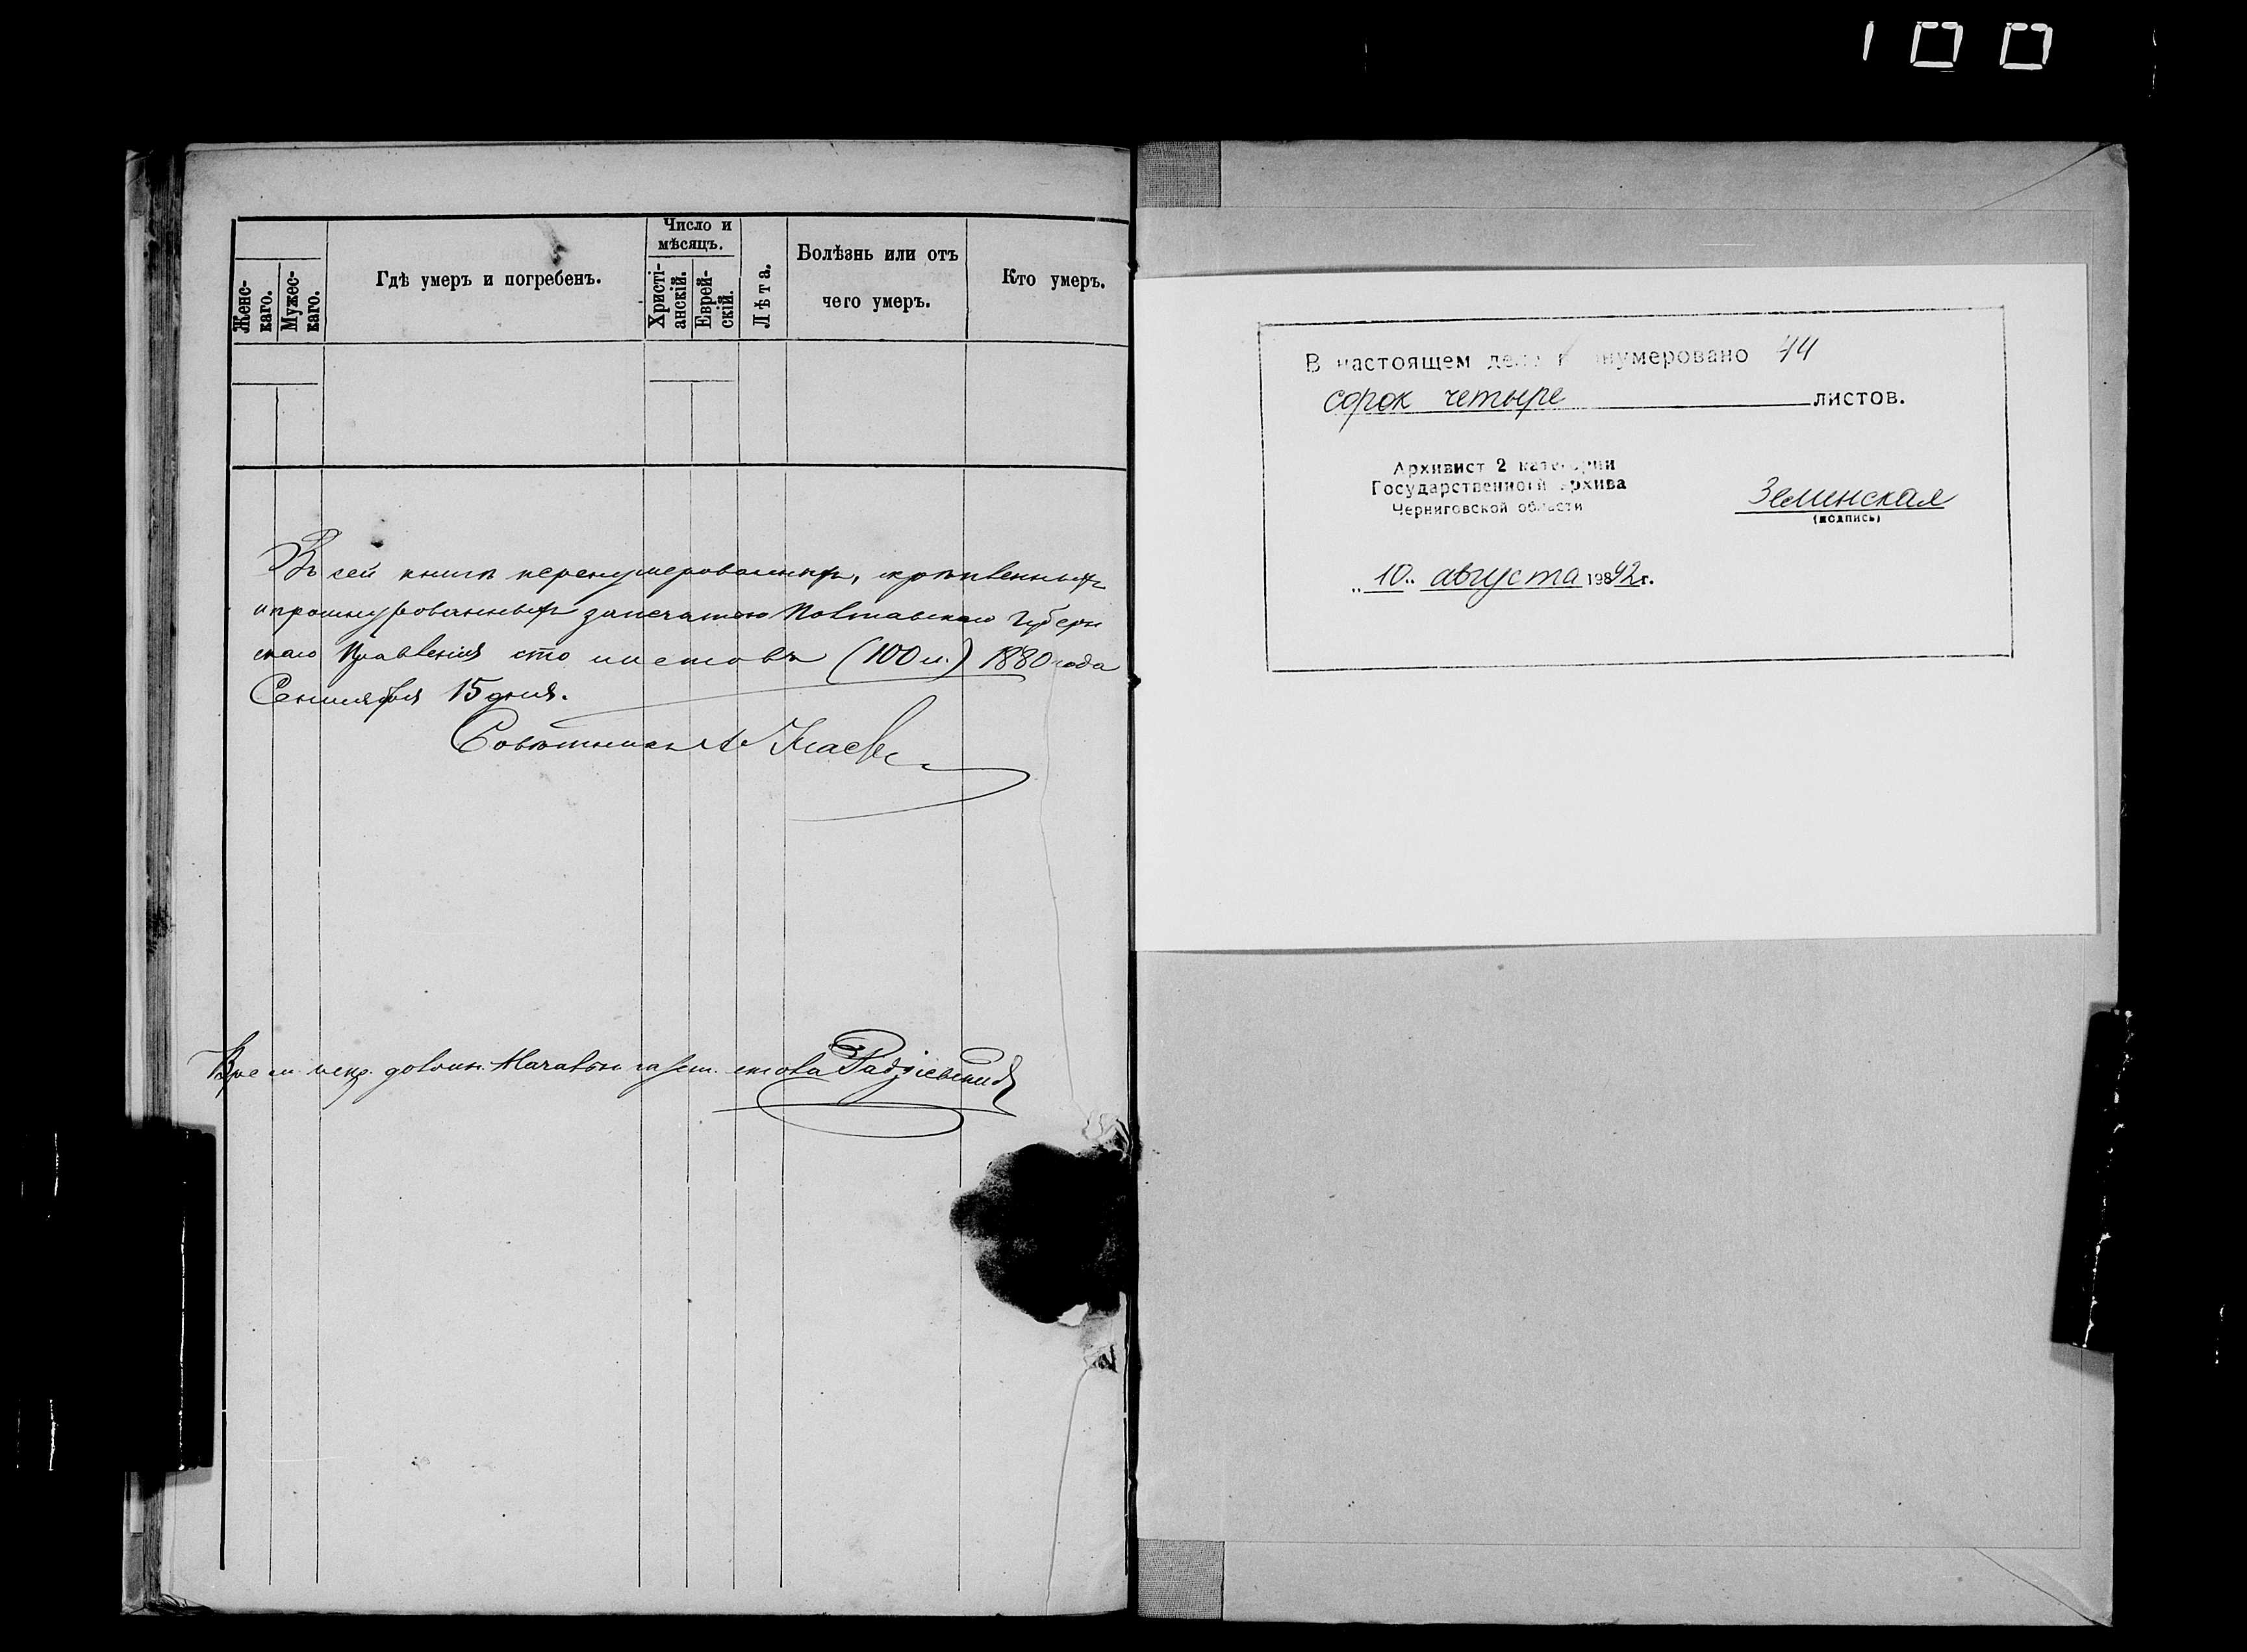 100
Число и
мѣсяцъ.
Женс-
каго.
Мужес-
каго.
Гдѣ умеръ и погребенъ.
Христі-
анскій.
Еврей-
скій.
Лѣта.
Болѣзнь или отъ
чего умеръ.
Кто умеръ.
Въ сей книгѣ перенумерованныхъ, скрѣпленныхъ
и прошнурованныхъ за печатью Полтавскаго Губерн
скаго Правленія сто листовъ (100 л.) 1880 года
Сентября 15 дня.
Совѣтникъ
стола Радзіевскій
В настоящем деле пронумеровано 44
сорок четыре листов.
Архивист 2 категории
Государственного архива
Черниговской области
Зелинская
(подпись)
„10" августа 1992 г.